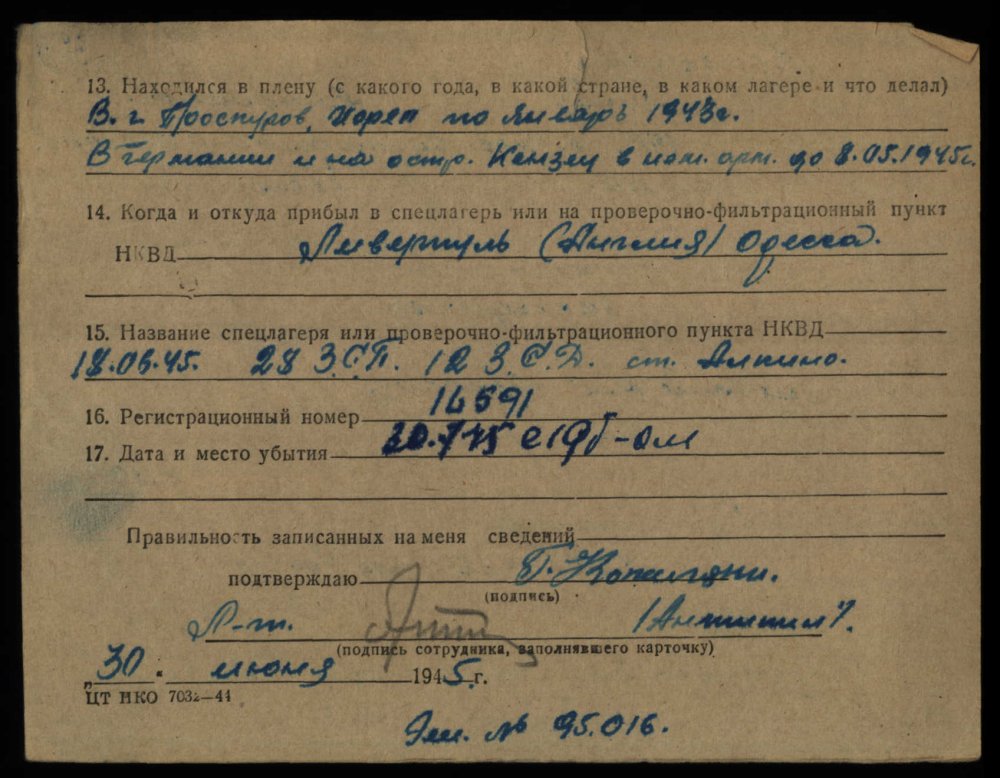 13. Находился в плену (с какого года, в какой стране, в каком лагере и что делал)
В. г. Проскуров, по январь 1943г.
В Германии и на остр. в до 8.05.1945г.
14. Когда и откуда прибыл в спецлагерь или на проверочно-фильтрационный пункт
НКВД Ливерпуль (Англия) Одесса.
15. Название спецлагеря или проверочно-фильтрационного пункта НКВД
18.06.45. 28 З.С.П. 12 З.С.Д. ст. Алкино.
16. Регистрационный номер 14591
17. Дата и место убытия
Правильность записанных на меня сведений
подтверждаю
(подпись)
Л-т.
(подпись сотрудника, заполнявшего карточку)
„30 " июня 1945 г.
ЦТ НКО 7032—44
№ 95.016.